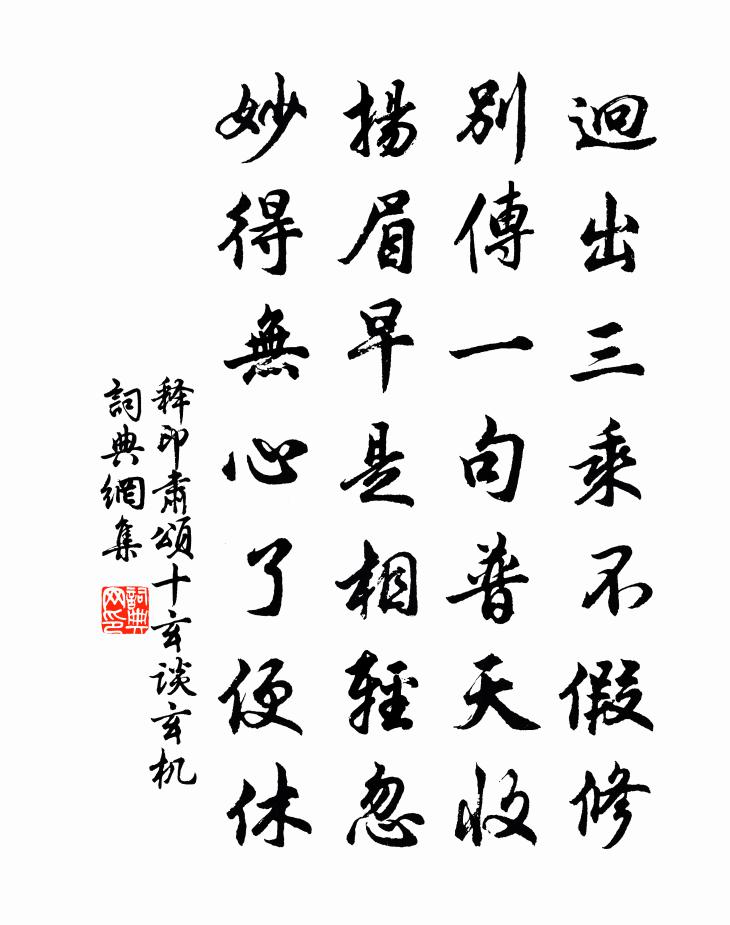 迥出三乘不假修
別傳一句普天收
揚眉早是相輕忽
妙得無心了便休
释印肃頌十玄谈玄机
詞典網集
詞典网印